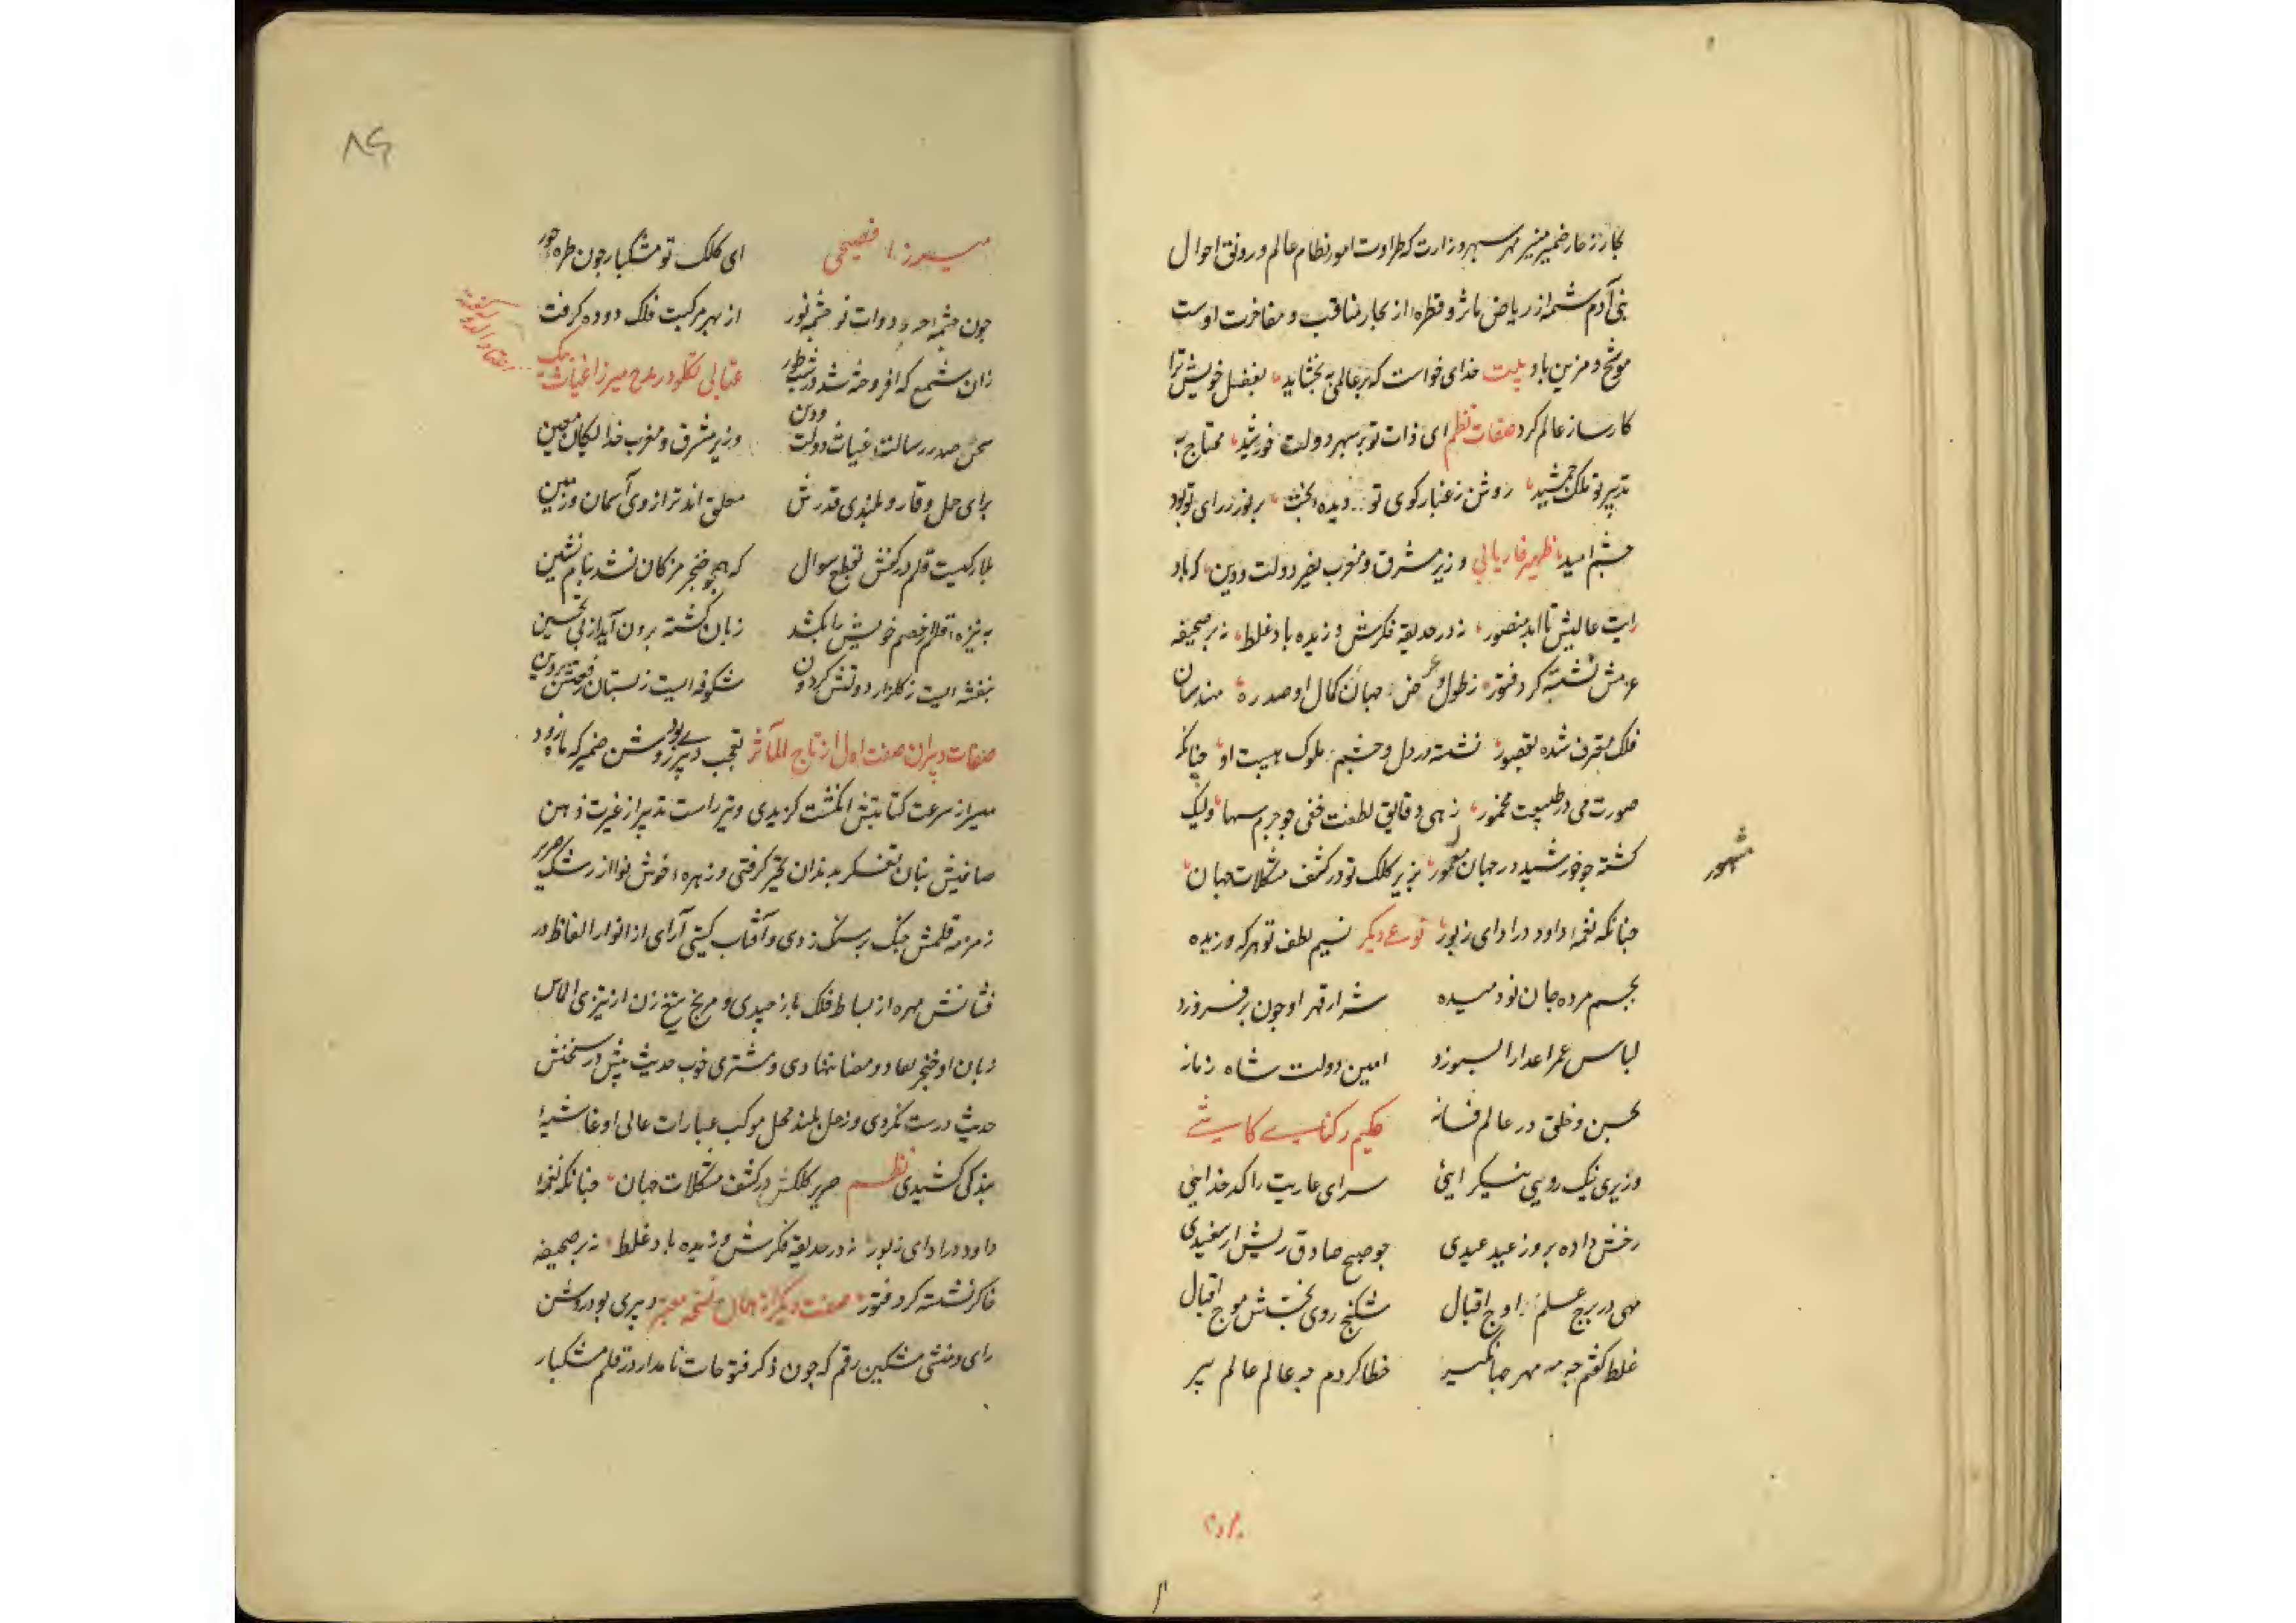 بحار زخار ضمیر منیر مهر سپهر وزارت که طراوت امور نظام عالم و رونق احوال
بنی آدم شمه از ریاض ماثر و قطره از بحار مناقب و مفاخرت اوست
موشح و مزین باد بیت خدای خواست که بر عالمی ببخشاید بفضل خویش ترا
کارساز عالم کرد صفات نظم ای ذات تو بر سپهر دولت خورشید محتاج به
تدبیر تو ملک جمشید روشن ز غبار کوی تو دیده بخت پر نور ز رای تو بود
چشم امید ظهیر فاریابی وزیر مشرق و مغرب نصیر دولت و دین که باد
رایت عالیش تا ابد منصور نه در حدیقه فکرش وزیده باد غلط نه بر صحیفه
عزمش نشسته کرد فتور ز طول و عرض جهان کمال او صد ره مهندسان
فلک معترف شده بقصور نشسته در دل و چشم ملوک هیبت او چنانکه
صورت می در طبیعت مخمور زهی دقایق لطفت خفی چو جرم سها ولیک
کشته چو خورشید در جهان مشهور صریر کلک تو در کشف مشکلات جهان
مشهور
چنانکه نغمه داود در ادای زبور نوع دیگر نسیم لطف تو هر که وزیده
بجسم مرده جان نو دمیده شرار قهر او چون بر فروزد
لباس عمر اعدا را بسوزد امین دولت شاه زمانه
بحسن و خلق در عالم فسانه حکیم رکنای کاشی
وزیری نیک رویی نیک رایی سرای عاریت را کدخدایی
رخش داده بروز عید عیدی چو صبح صادق ریش از سفیدی
مهی در برج علم و اوج اقبال شکنج روی بختش موج اقبال
غلط کفتم چه مه مهر جهانکیر خطا کردم چه عالم عالم پیر
میرزا فصیحی ای کلک تو مشکبار چون طره حور
چون چشمه دوات تو چشمه نور از بهر مرکبت فلک دوده کرفت
زان شمع که افروخته شد در شب طور عتابی تکلو در مدح میرزا غیاث بیک
سخن صدر رسالت غیاث دولت و دین وزیر مشرق و مغرب خدایکان معین
برای حمل وقار و بلندی قدرش معلق اند ترازوی آسمان و زمین
قلم در کفش بقطع سوال که همچو خنجر مژکان نشد نیام نشین
به نیزه قلم خصم خویش را بکشد زبان کشته برون آید از پی تحسین
بنفشه ایست ز کلزار دولتش کردون شکوفه ایست ز بستان رفعتش پروین
صفات دبیران صفت اول از تاج المآثر تعجب دبیر روشن ضمیر که
میر از سرعت کتابتش انکشت کزیدی و تیر راست تدبیر از غیرت ذهن
صافیش بنان تفکر بدندان تحیر کرفتی و زهره خوش نوا از رشک صریر
زمزمه قلمش چنک بر سنک زدی و آفتاب کیتی آرای از انوار الفاظ در
فشانش مهره از بساط فلک باز چیدی و مریخ تیغ زن از تیزی الماس
زبان او خنجر نهادی و مشتری خوب حدیث پیش در سخنش
حدیث درست نکردی و زحل بلند محل موکب عبارات عالی او غاشیه
بندکی کشیدی نظم صریر کلکش در کشف مشکلات جهان چنانکه نغمه
داود در ادای زبور نه در حدیقه فکرش وزیده باد غلط نه بر صحیفه
فکر نشسته کرد فتور صفت دیکر از همان نسخه معتبر دبیری بود روشن
رای و منشی مشکین رقم که چون ذکر فتوحات نامدار در قلم مشکبار